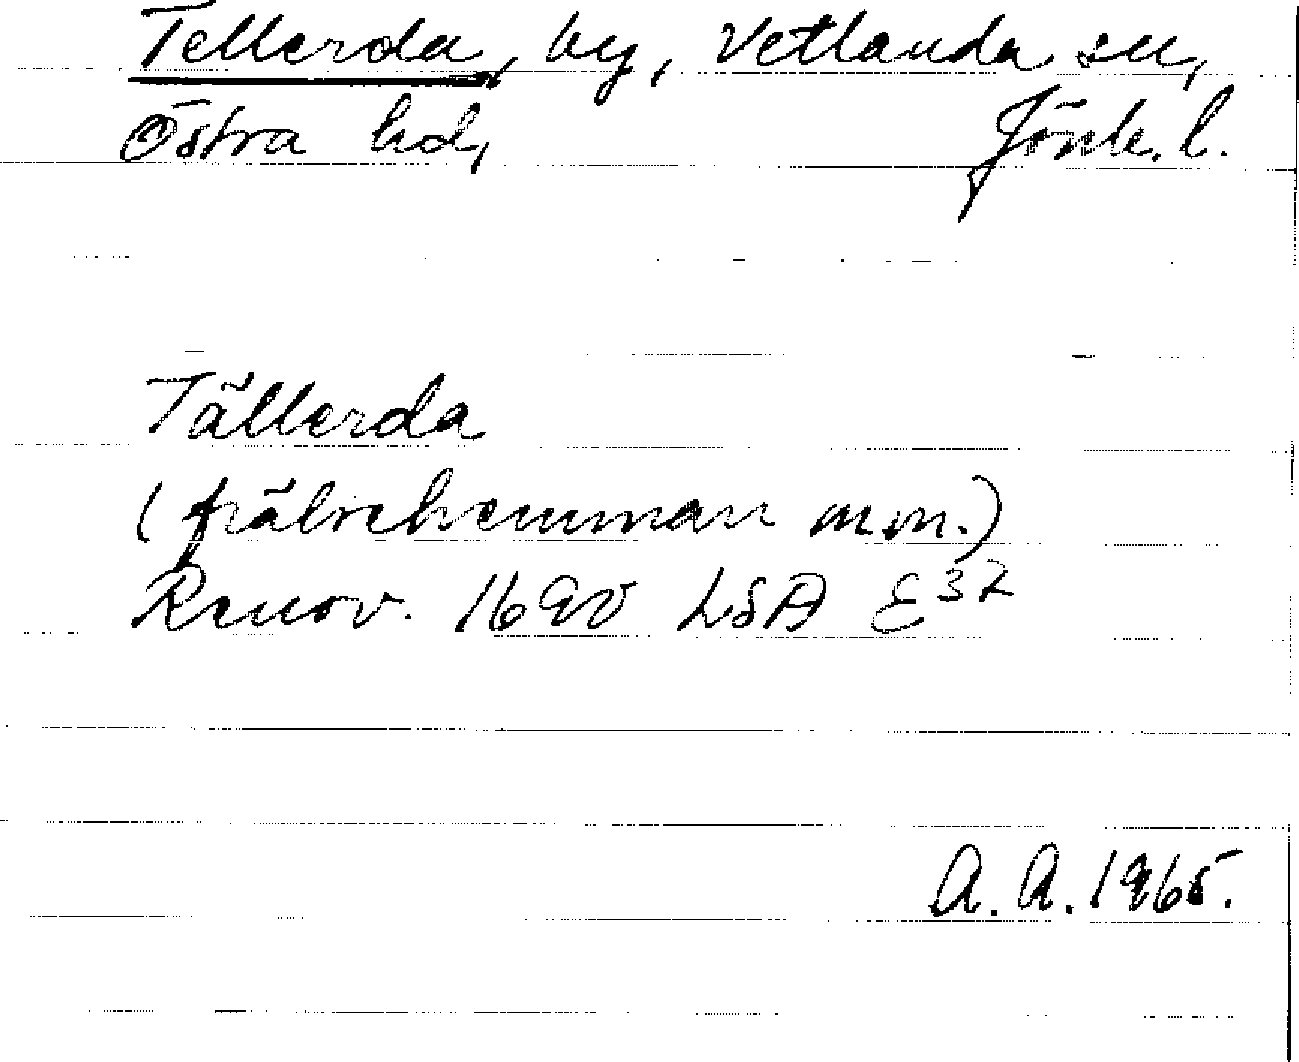 Tellerda, by, Vetlanda sn,
Östra hd, Jönk. l.
Tällerda
(frälsehemman m.m.)
Renov. 1690 LSA E³⁷
A. A. 1965.